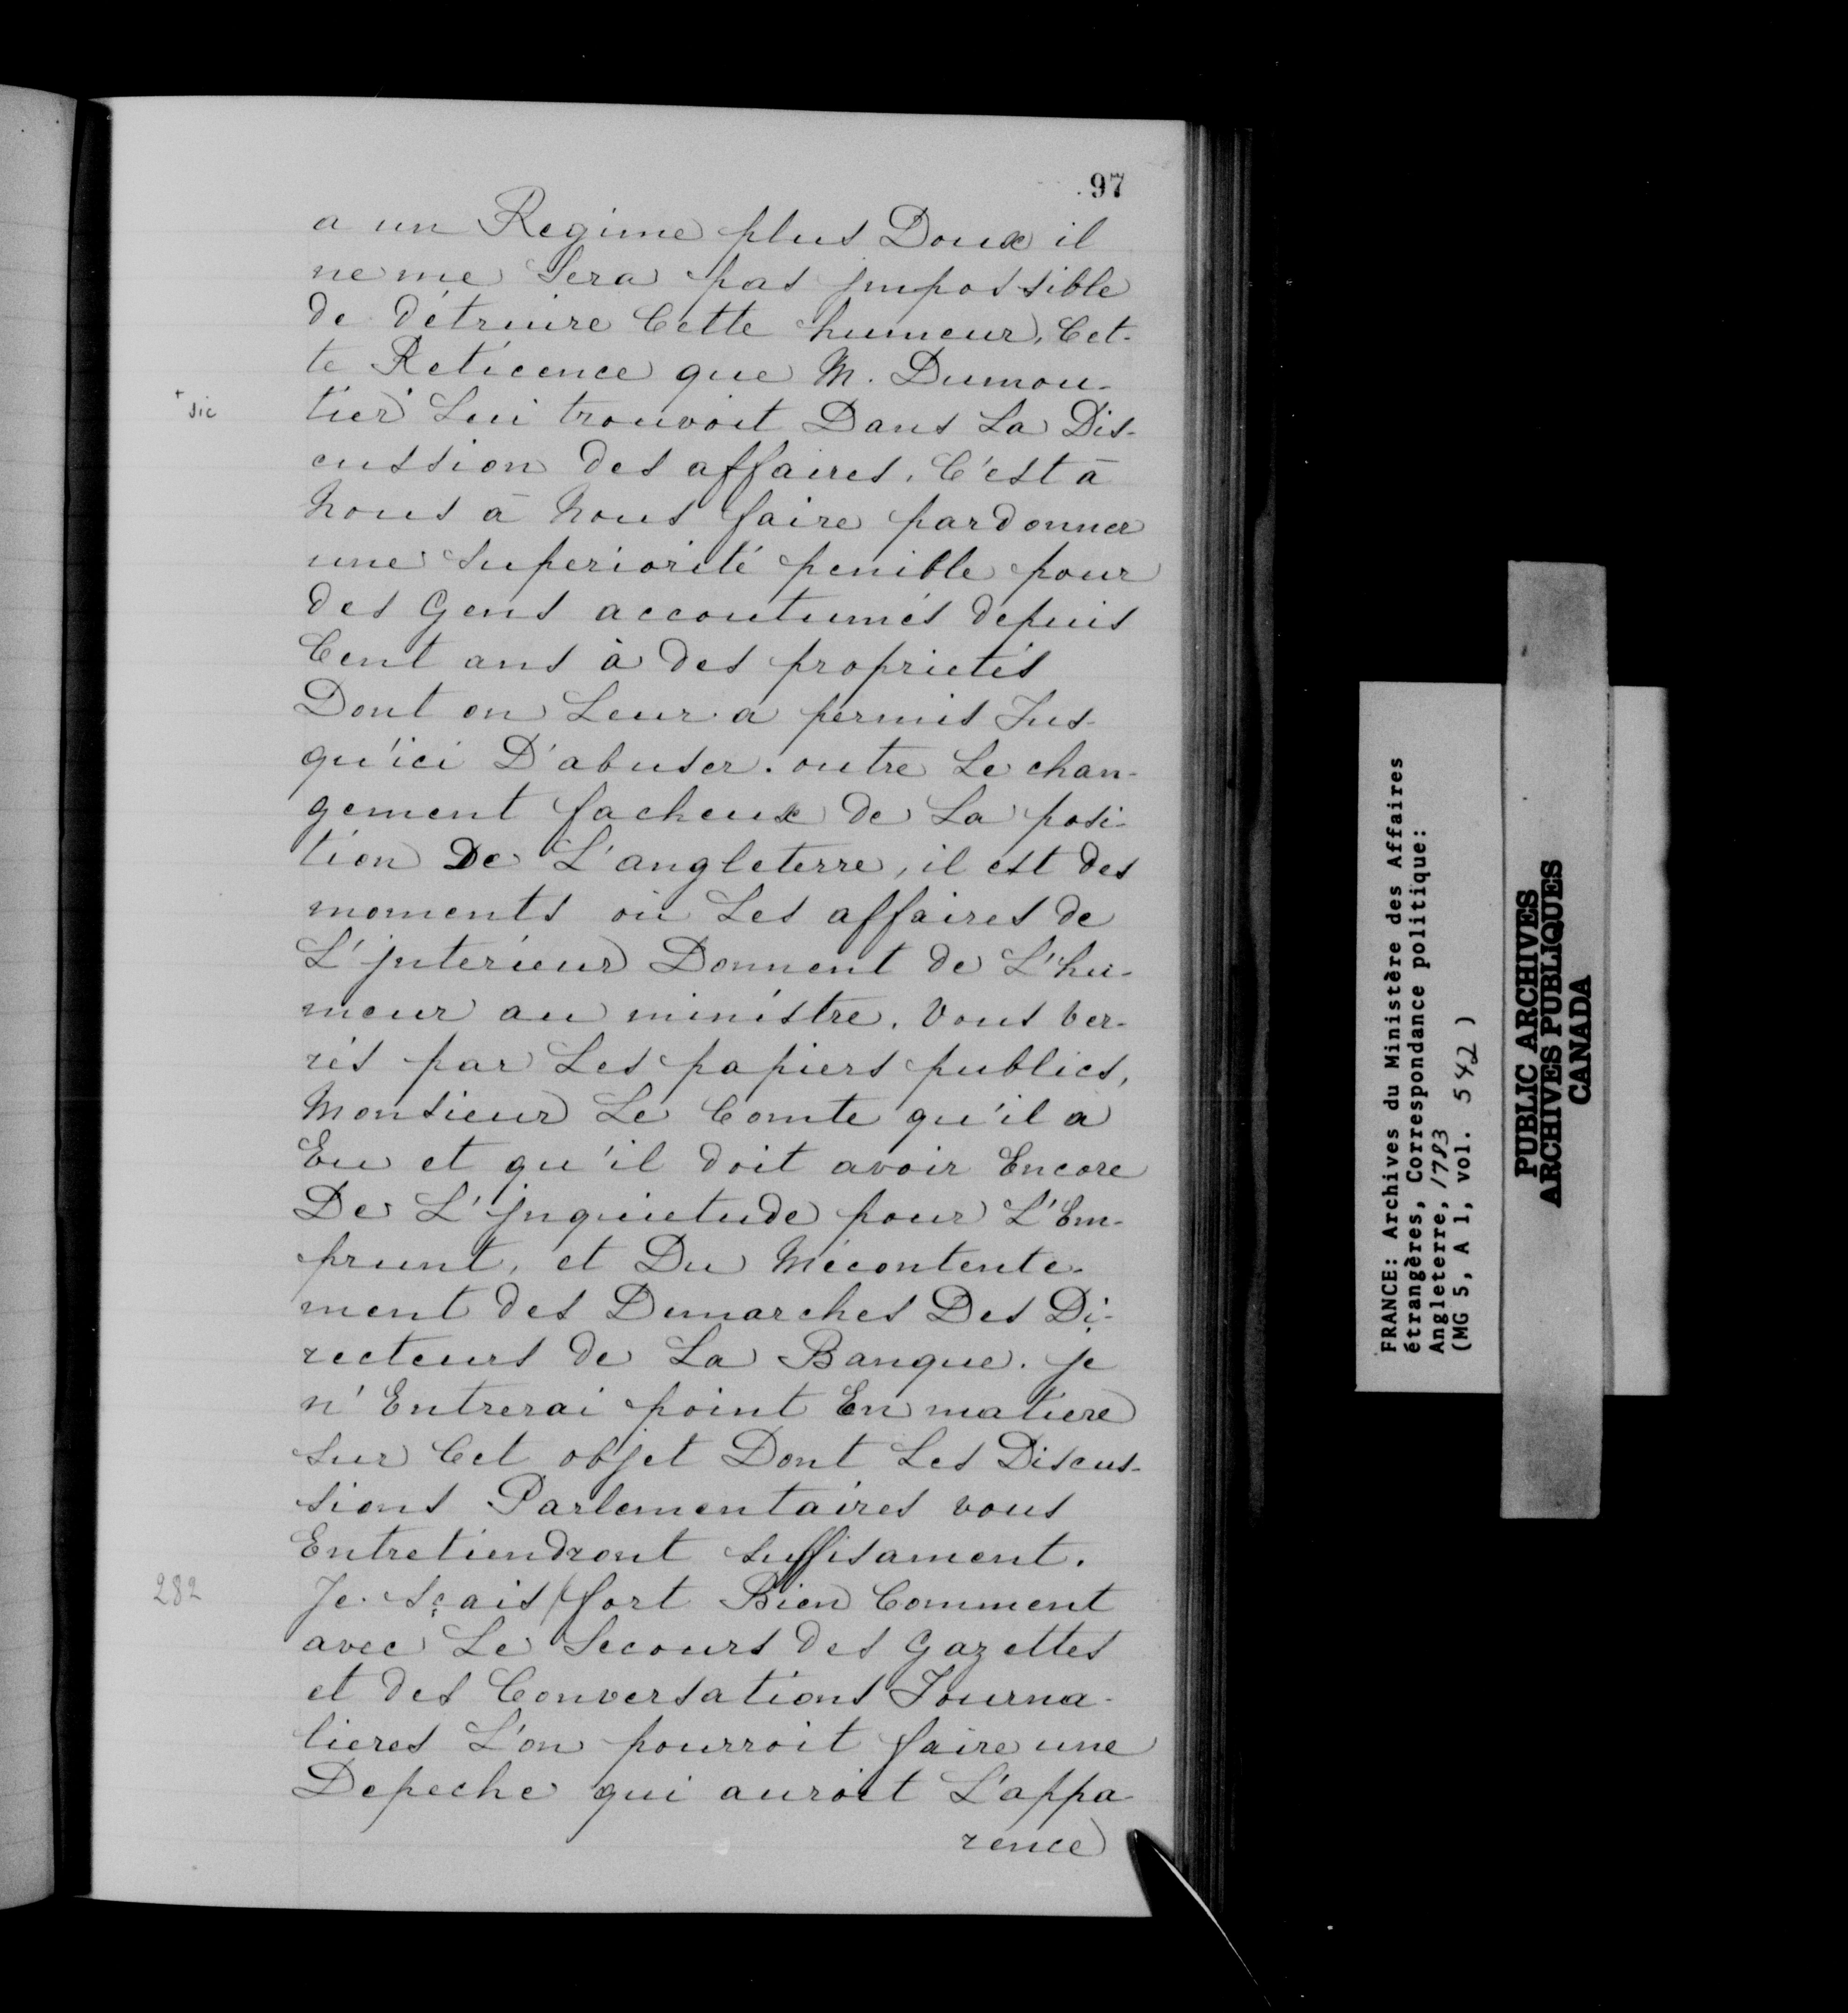 97
a un Regime plus Doux il
ne me Sera pas jmpossible
de détruire Cette humeur, Cet-
te Reticence que M. Dumou-
+ sic
tier Lui trouvoit Dans La Dis-
cussion des affaires. C'est à
Nous à Nous faire pardonner
une superiorité penible pour
des Gens accoutumés depuis
Cent ans à des proprietés
Dont on Leur a permis Jus-
qu'ici D'abuser. outre Le chan-
gement facheux de La posi-
tion De L'angleterre, il est des
moments où Les affaires de
L'jnterieur Donnent de L'hu-
meur au ministre. Vous ver-
rés par Les papiers publics,
Monsieur Le Comte qu'il a
Eu et qu'il doit avoir Encore
De L'jnquietude pour L'Em-
prunt, et Du Mécontente-
ment des Demarches Des Di-
recteurs de La Banque. je
n'Entrerai point En matiere
sur Cet objet Dont Les Discus-
sions Parlementaires vous
Entretiendront suffisament.
282
Je sçais / fort Bien Comment
avec Le Secours des Gazettes
et des Conversations Journa-
lieres L'on pourroit faire une
Depeche qui auroit L'appa-
rence
FRANCE: Archives du Ministère des Affaires
étrangères, Correspondance politique:
Angleterre, 1783
(MG 5, A 1, vol. 542 )
PUBLIC ARCHIVES
ARCHIVES PUBLIQUES
CANADA